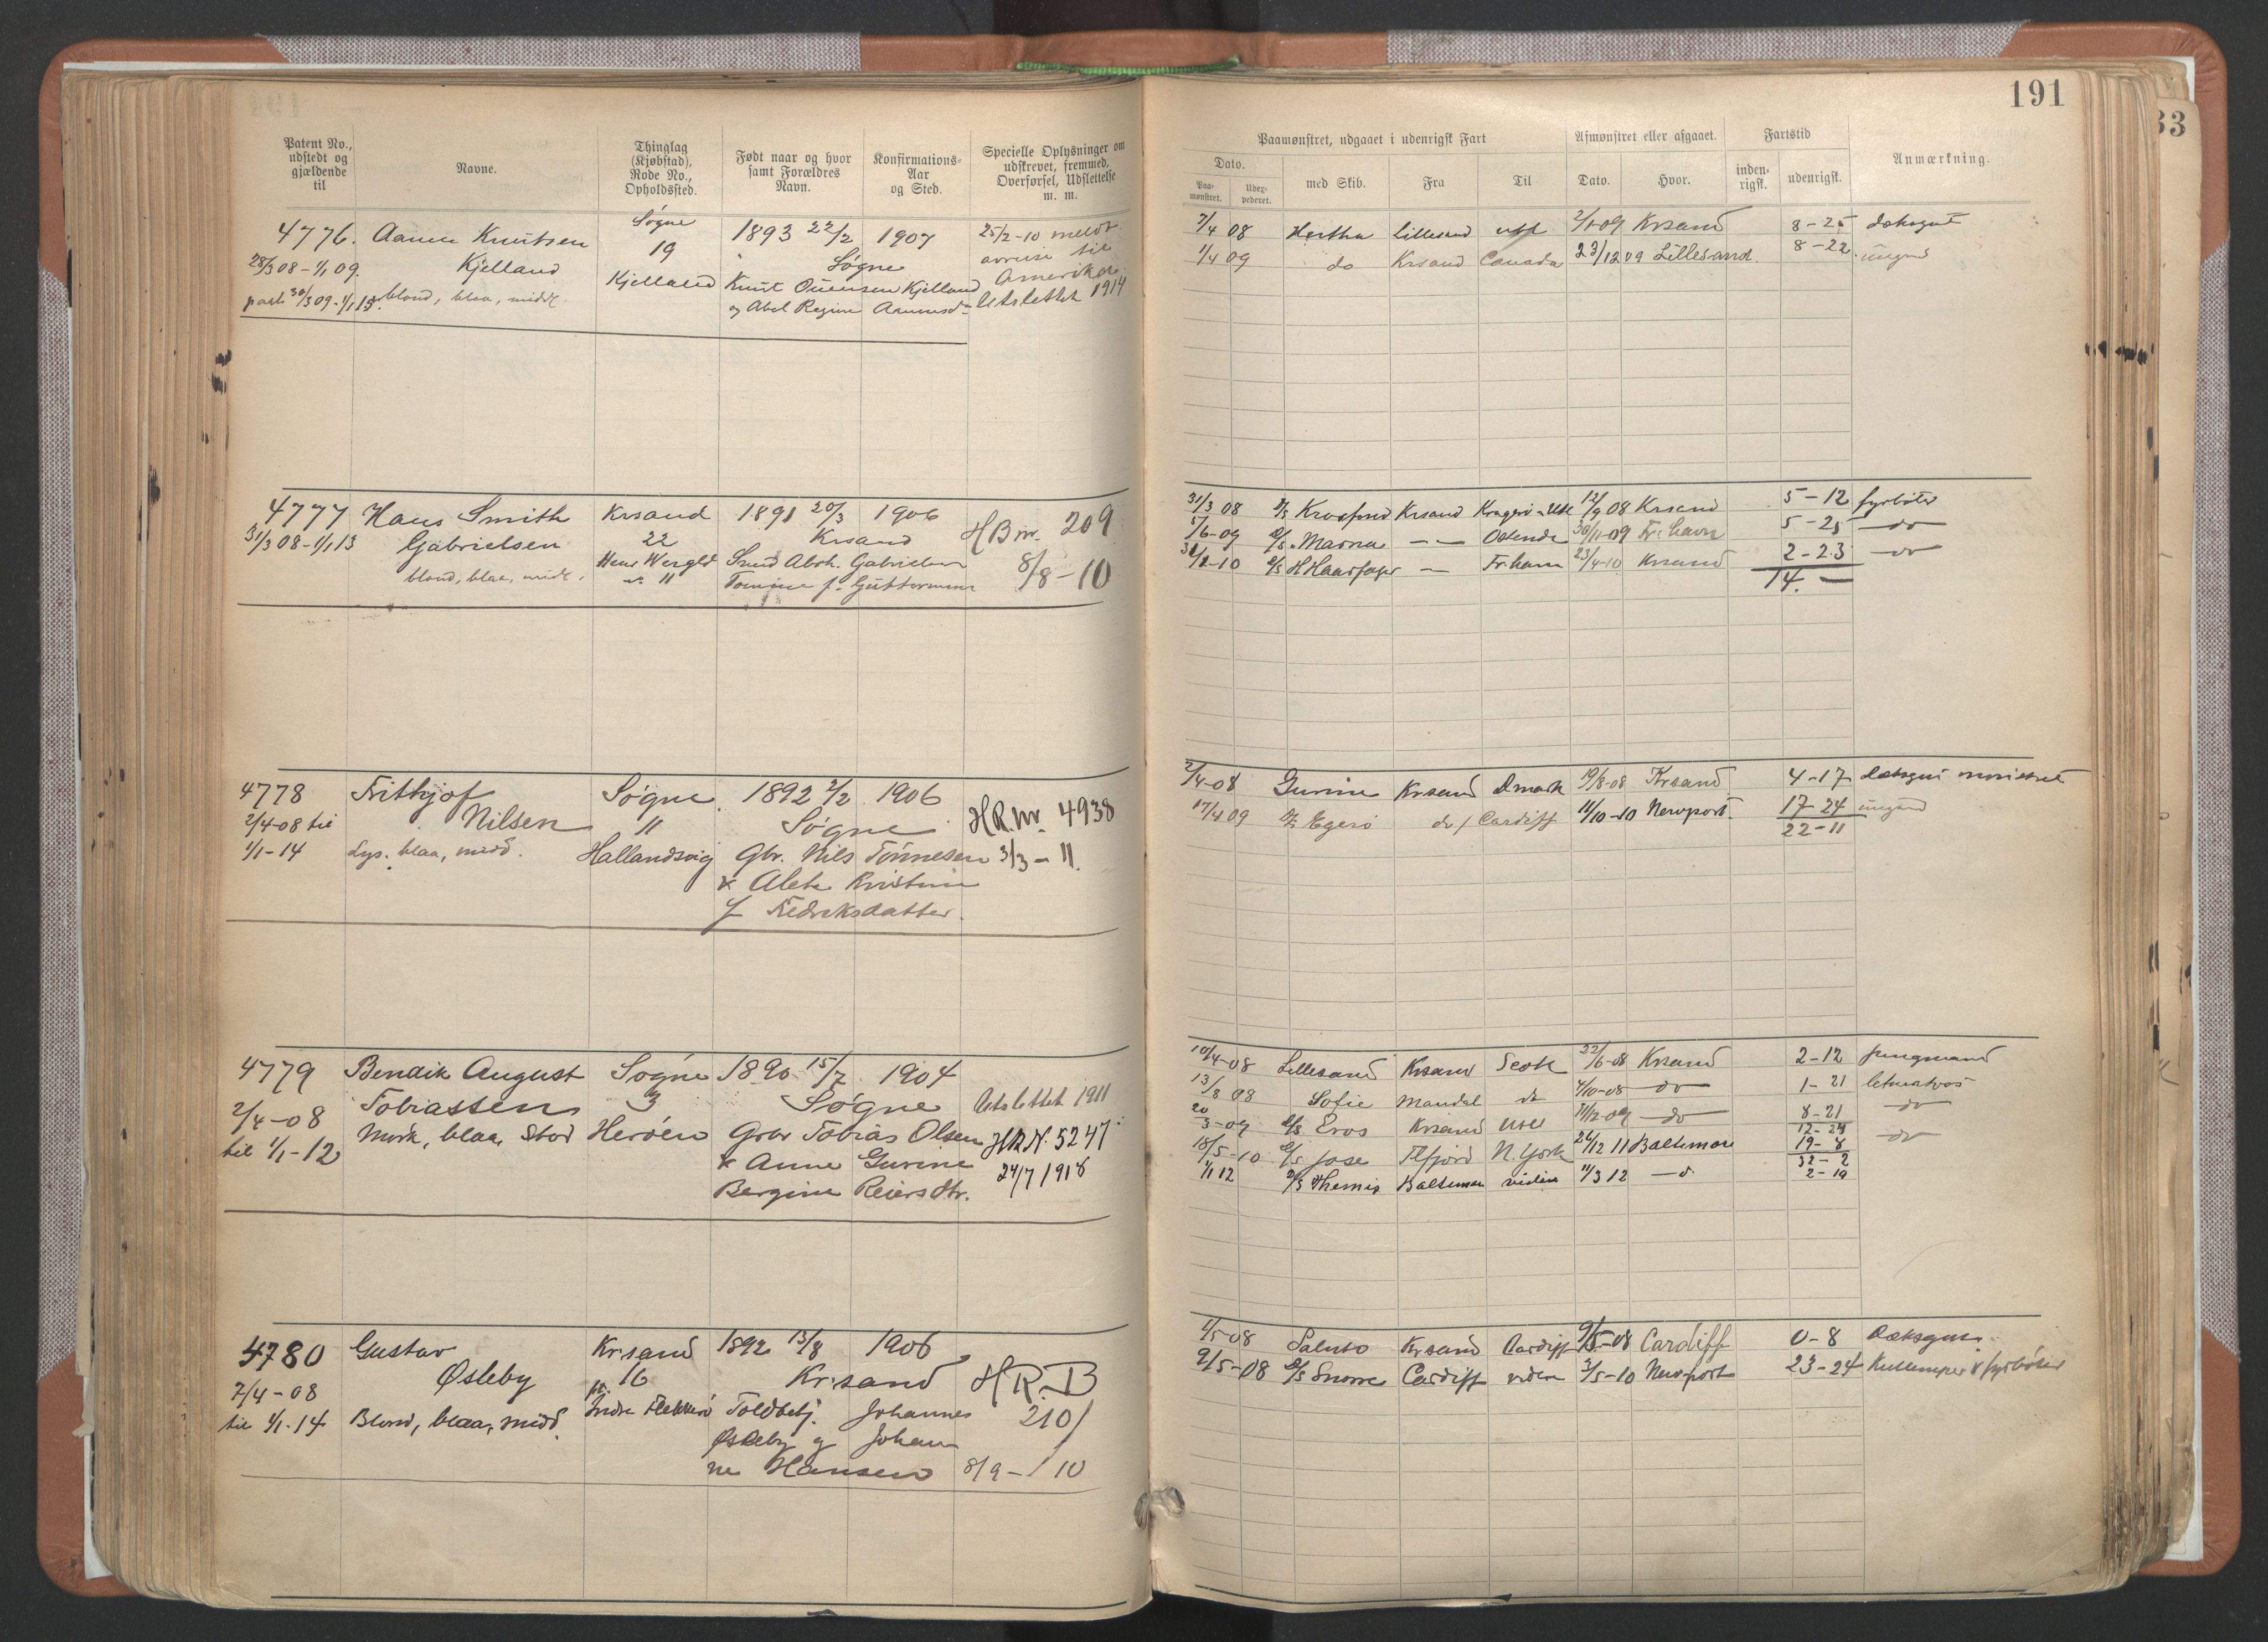 191
33
Patent No., udstedt og gjældende til
Navne.
Thinglag (Kjøbstad), Rode No., Opholdssted.
Født naar og hvor samt Forældres Navn.
Konfirmations-Aar og Sted.
Specielle Oplysninger om udskrevet, fremmed, Overførsel, Udslettelse m. m.
Paamønstret, udgaaet i udenrigsk Fart
Afmønstret eller afgaaet.
Fartstid
Anmærkning.
Dato.
Paa-mønstret.
Udex-pederet.
med Skib.
Fra
Til
Dato.
Hvor.
inden-rigsk.
udenrigsk.
4776. Aanen Knutsen Søgne 1893 22/2 1907 25/2-10 meldt
28/3 08 - 1/1 09. Kjelland 19 Søgne avreise til
30/3 09 - 1/1 15. blond, blaa, midd. Kjelland Knut Kjelland Amerika
og Abel Regine Aanensd. Utslettet 1914
7/4 08 Hertha Lillesand 2/1-09 Krsand 8-25 dæksgut
1/4 09 do Krsand Canada 23/12 09 Lillesand. 8-22
4777 Hans Smith Krsand 1891 20/3 1906 HB nr. 209
31/3 08 - 1/1 13 Gabrielsen 22 Krsand 8/8-10
blond, blaa, midd. Henr Wergld Smed Abrh. Gabrielsen
11 Tomine f. Guttormsen
31/3 08 Krsand 12/9 08 Krsand 5-12 fyrbøter
5/6-09 Marna Ostende 30/11-09 Fr.havn 5-25 do
-10 H Haarfager Fr.havn 23/4-10 Krsand 2-23 do
14. -
4778 Frithjof Søgne 1892 2/2 1906 HR. Nr. 4938
2/4-08 til Nilsen 11 Søgne 3/3-11.
1/1-14 Lys. blaa, midd. Hallandsvig Gbr. Nils Tønnesen
& Alete Kristine
f Fedriksdatter.
2/4-08 Gurine Krsand Dmark 19/8-08 Krsand 4-17
17/4 09 Egerø do Cardiff 11/10-10 Newport. 17-24
22-11
4779 Bendik August Søgne 1890 15/7 1904 Utslettet 1911
2/4-08 Tobiassen 3 Søgne HR N. 5247
til 1/1-12 Mørk, blaa, Stor Herøen Gbr Tobias Olsen 24/7 1918
& Anne Gurine
Bergine Reiersdtr.
10/4-08 Lillesand Krsand Scotl 22/6-08 Krsand 2-12 Jungmand
13/8 08 Sofie Mandal do 4/10-08 do 1-21 letmatros
20/3-09 Eros Krsand do 8-21 do
12-24
18/5-10 Jose N. York 26/12 11 Baltimore 19-8 do
32-2
1/1 12 Themis Baltimore videre 11/3 12 2-10
4780 Gustav Kr.sand 1892 13/8 1906 H R. B
7/4-08 Østeby 16 Kr.sand 210
til 1/1-14 Blond, blaa, midd. Indre Flekkerø Toldbetj. Johannes
Østeby og Johan
ne Hansen 8/9-10
1/5-08 Saluto Krsand Cardiff 9/5-08 Cardiff 0-8 Dæksgut
9/5-08 Snorre Cardiff videre 3/5-10 Newport 23-24 Kullemper & fyrbøter